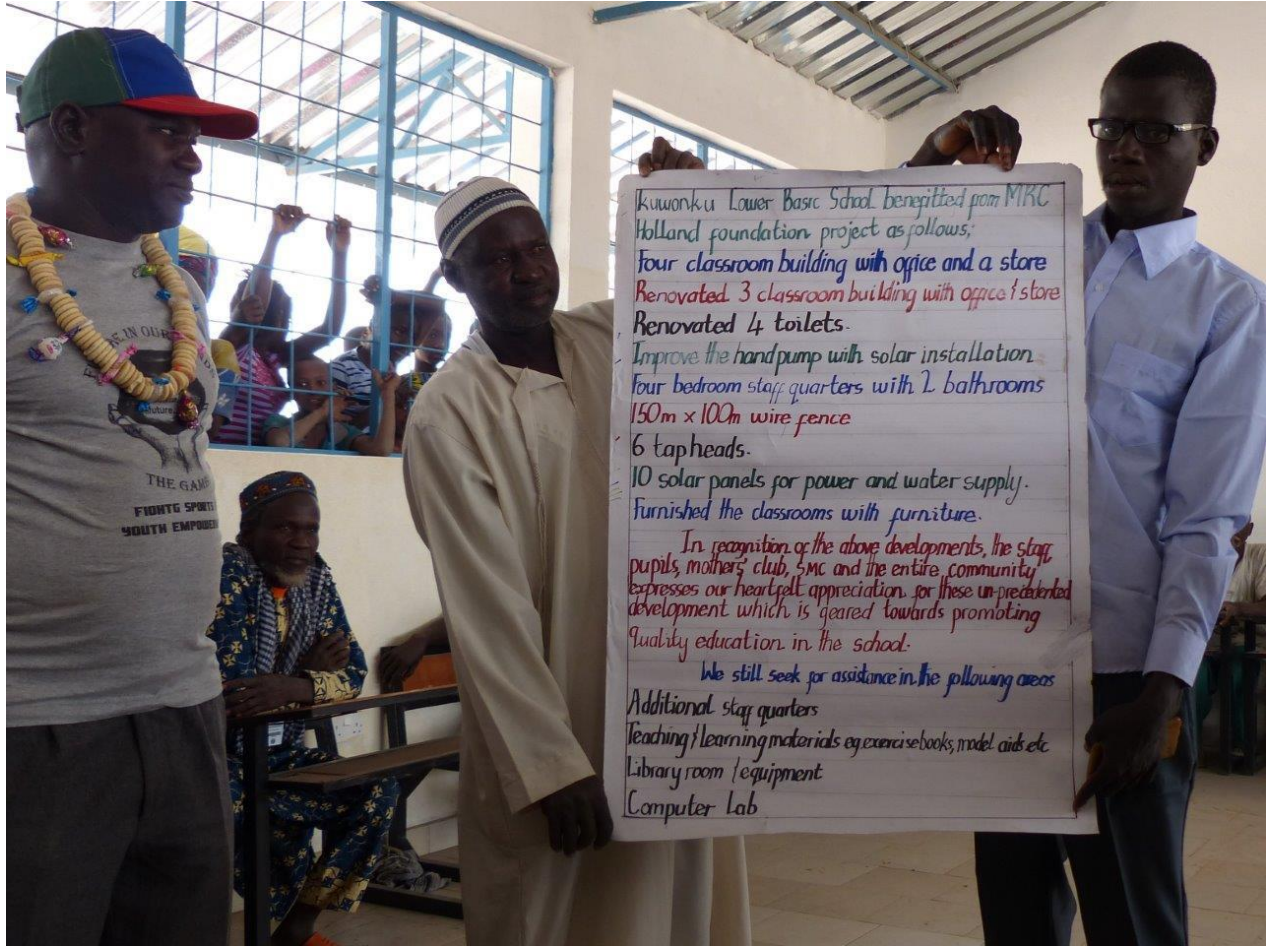 Kuwonku Lower Basic School benefitted from MRC
Holland foundation project as follows;
Four classroom building with office and a store
Renovated 3 classroom building with office & store
Renovated 4 toilets.
Improve the handpump with solar installation
Four bedroom staff quarters with 2 bathrooms
150m x 100m wire fence
6 tapheads.
10 solar panels for power and water supply.
Furnished the classrooms with furniture.
In recognition of the above developments, the staff,
pupils, mothers' club, SMC and the entire community
expresses our heartfelt appreciation for these un-precedented
development which is geared towards promoting
quality education in the school.
We still seek for assistance in the following areas
Additional staff quarters
Teaching & learning materials eg exercise books, model aids etc
Library room / equipment
Computer Lab
IN OUR
future
THE GAM
FIGHTG SPORTS
YOUTH EMPOWER